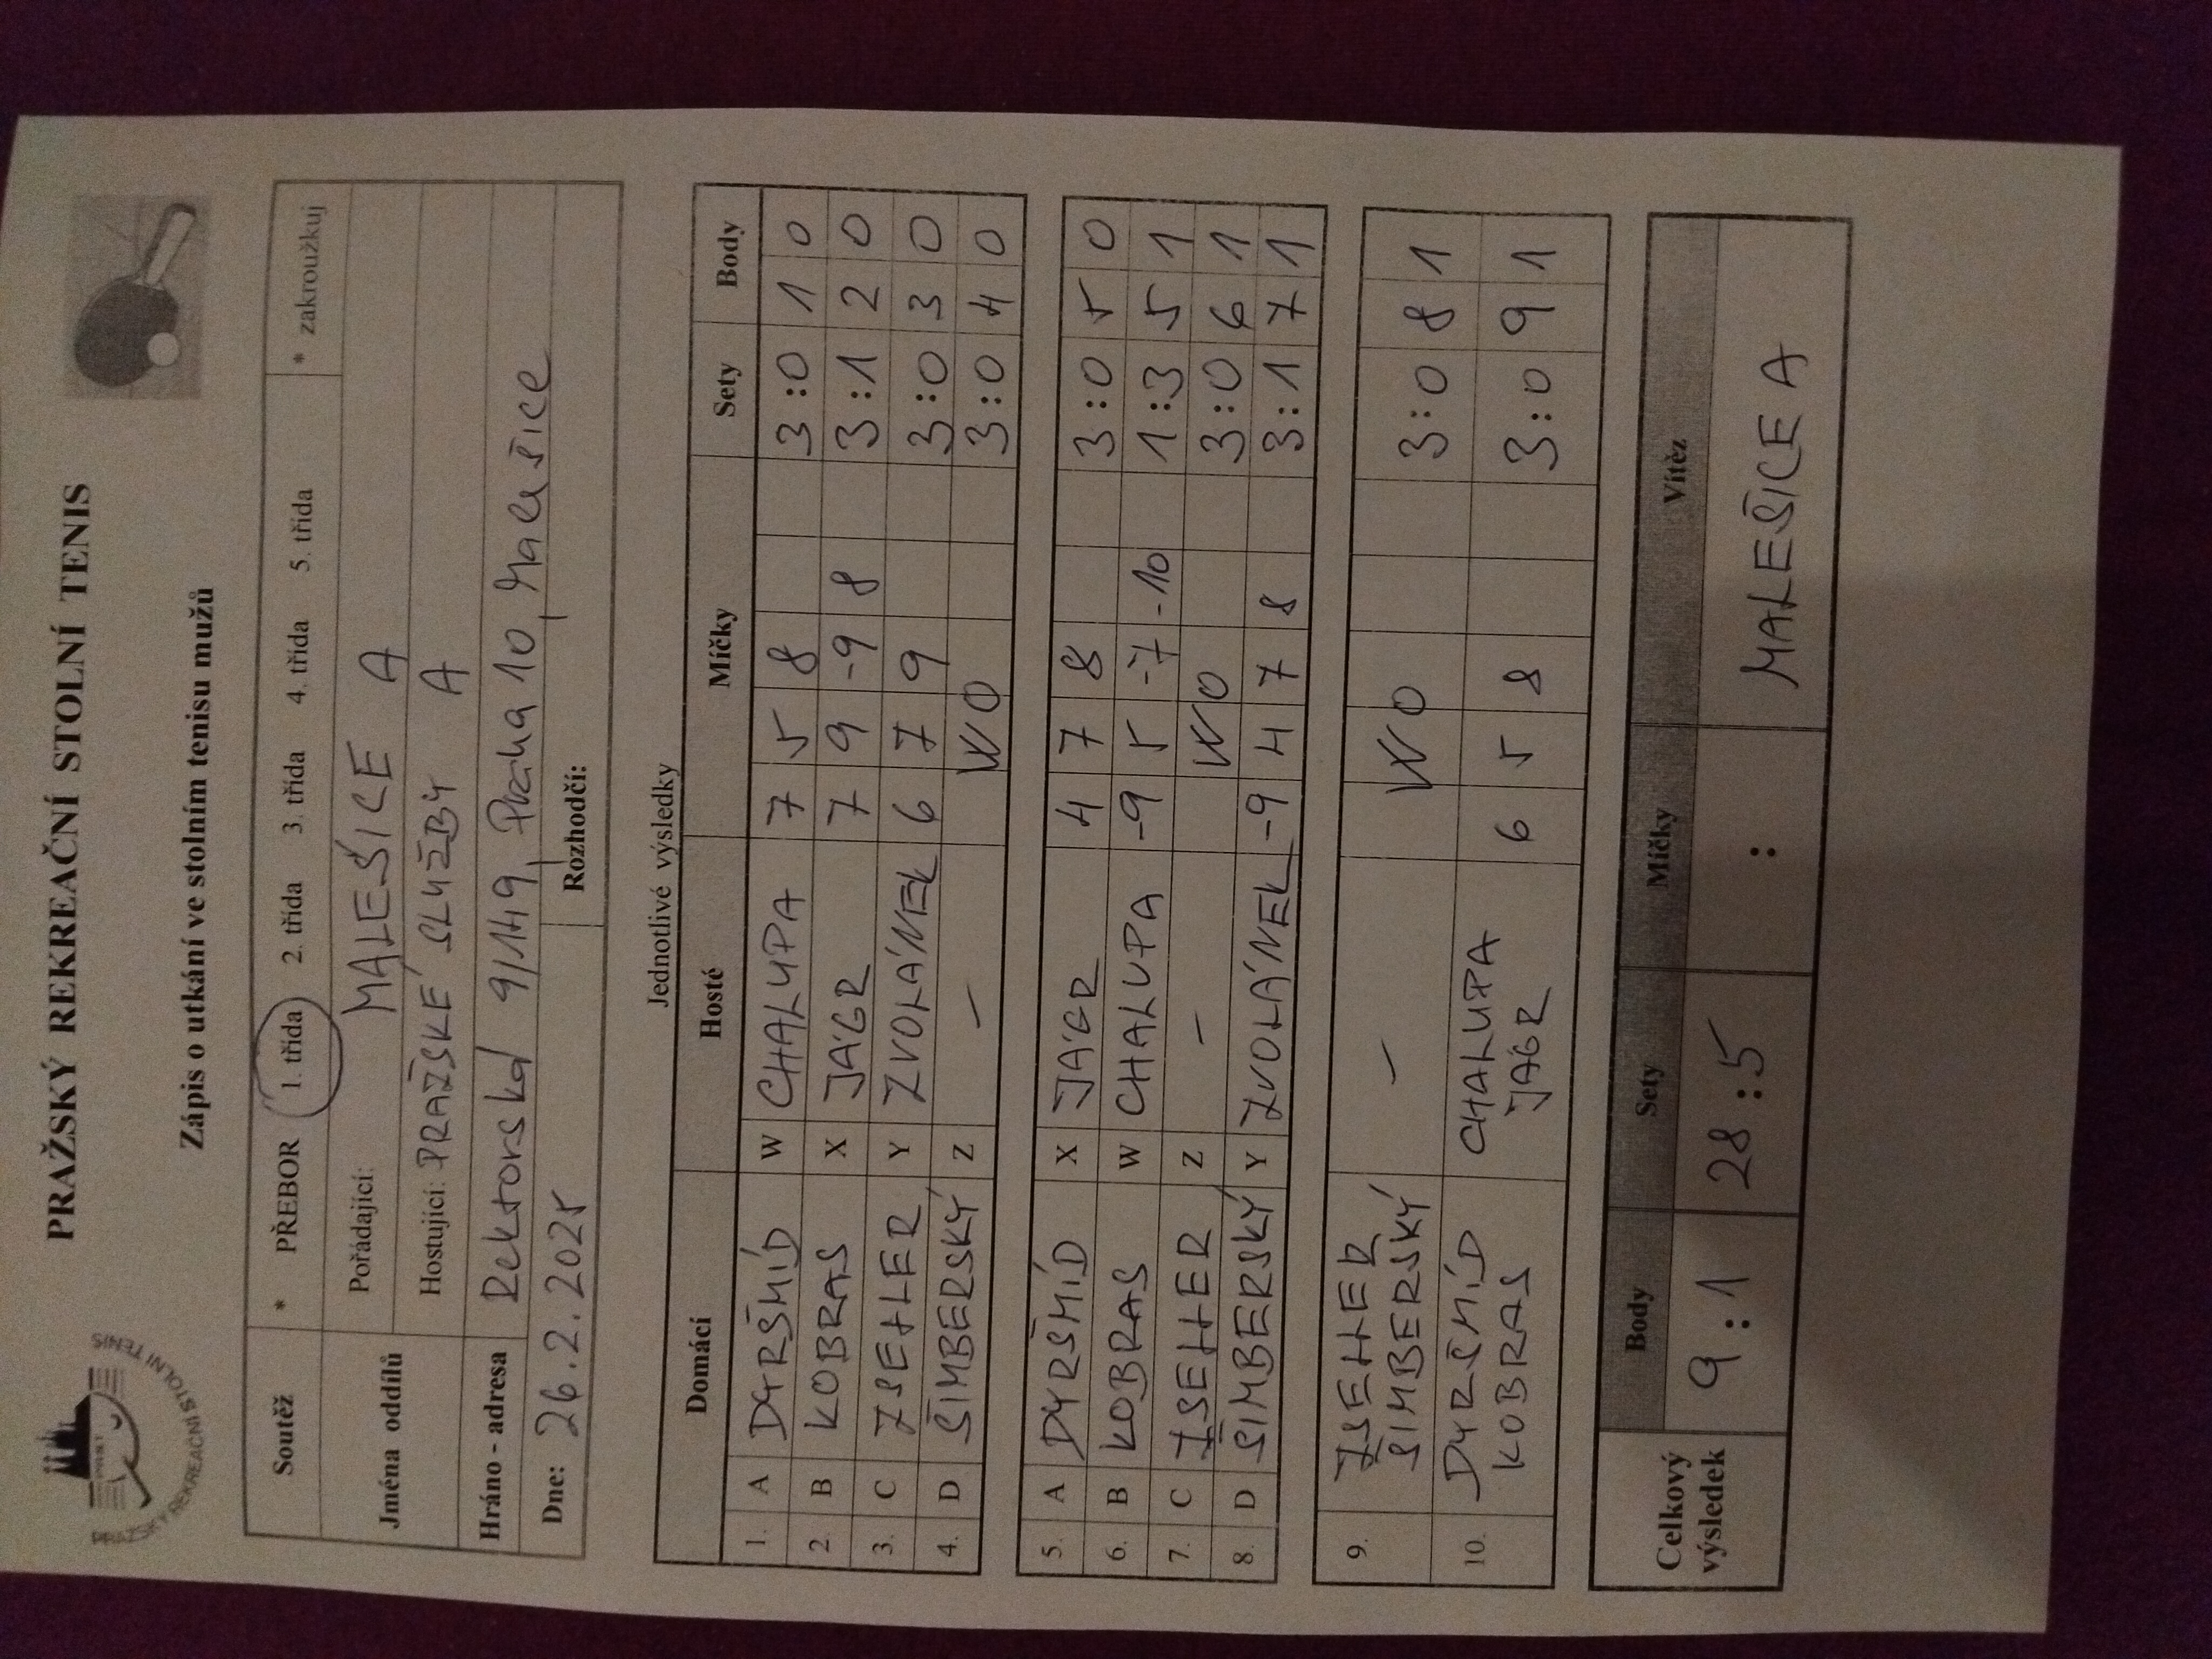 PRAŽSKÝ REKREAČNÍ STOLNÍ TENIS
PRAŽSKÝ REKREAČNÍ STOLNÍ TENIS
Zápis o utkání ve stolním tenisu mužů
Soutěž * PŘEBOR 1. třída 2. třída 3. třída 4. třída 5. třída * zakroužkuj
Jména oddílů Pořádající: MALEŠICE A
Hostující: PRAŽSKÉ SLUŽBY A
Hráno - adresa Rektorská 9/149, Praha 10, Malešice
Dne: 26.2.2025 Rozhodčí:
Jednotlivé výsledky
Domácí Hosté Míčky Sety Body
1. A DYRŠMÍD W CHALUPA 7 5 8 3:0 1 0
2. B KOBRAS X JÁGR 7 9 -9 8 3:1 2 0
3. C ISEHLER Y ZVOLÁNEK 6 7 9 3:0 3 0
4. D ŠIMBERSKÝ Z – WO 3:0 4 0
5. A DYRŠMÍD X JÁGR 4 7 8 3:0 5 0
6. B KOBRAS W CHALUPA -9 5 -7 -10 1:3 5 1
7. C ISEHLER Z – WO 3:0 6 1
8. D ŠIMBERSKÝ Y ZVOLÁNEK -9 4 7 8 3:1 7 1
9. ISEHLER – WO 3:0 8 1
ŠIMBERSKÝ
10. DYRŠMÍD CHALUPA 6 5 8 3:0 9 1
KOBRAS JÁGR
Celkový výsledek Body Sety Míčky Vítěz
9:1 28:5 : MALEŠICE A